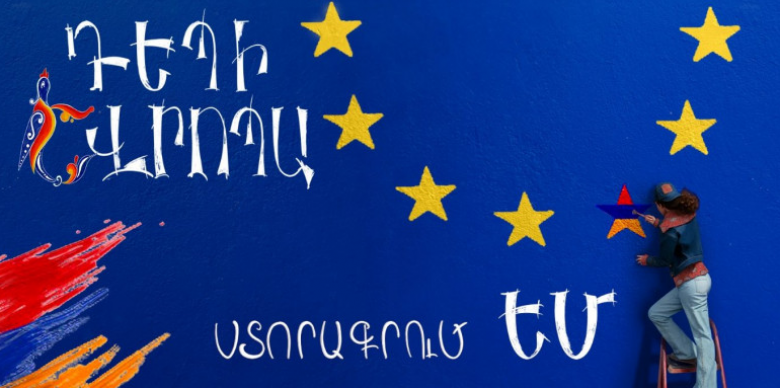 ԴԵՊԻ
ԵՎՐՈՊԱ
ՍՏՈՐԱԳՐՈՒՄ ԵՄ